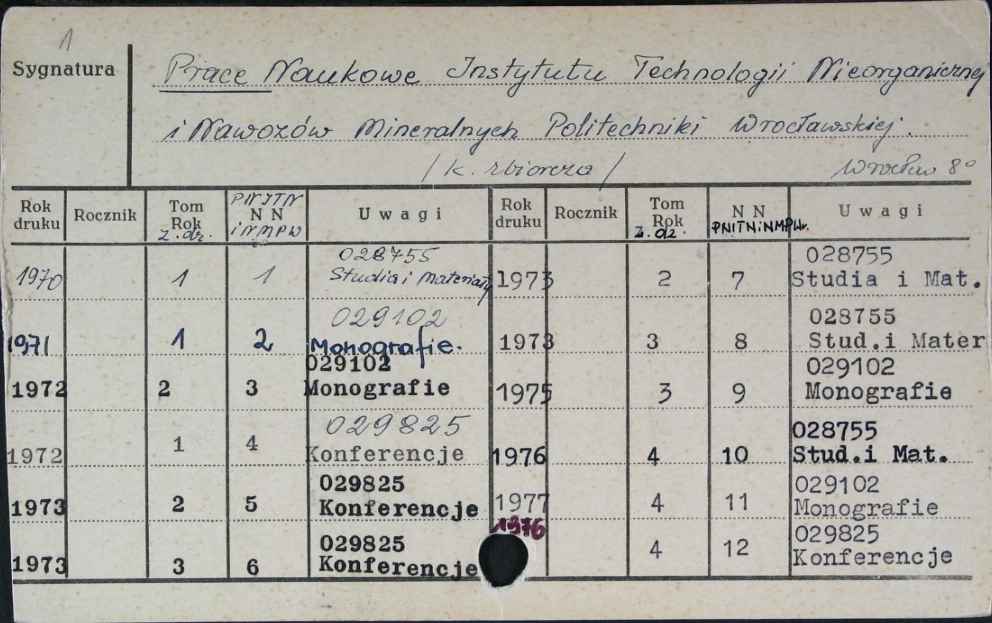 1
Sygnatura
Prace Naukowe Instytutu Technologii Nieorganicznej
i Nawozów Mineralnych Politechniki Wrocławskiej.
/ k. zbiorcza / Wrocław 8°
Rok druku Rocznik Tom Rok z. dz. PNITN NN i NMPW Uwagi Rok druku Rocznik Tom Rok z. dz. NN PNITNiNMPW. Uwagi
1970 1 1 028755 Studia i Materiały 1973 2 7 028755 Studia i Mat.
1971 1 2 029102 Monografie. 1973 3 8 028755 Stud.i Mater
1972 2 3 029102 Monografie 1975 3 9 029102 Monografie
1972 1 4 029825 Konferencje 1976 4 10 028755 Stud.i Mat.
1973 2 5 029825 Konferencje 1977 4 11 029102 Monografie
1973 3 6 029825 Konferencje 1976 4 12 029825 Konferencje